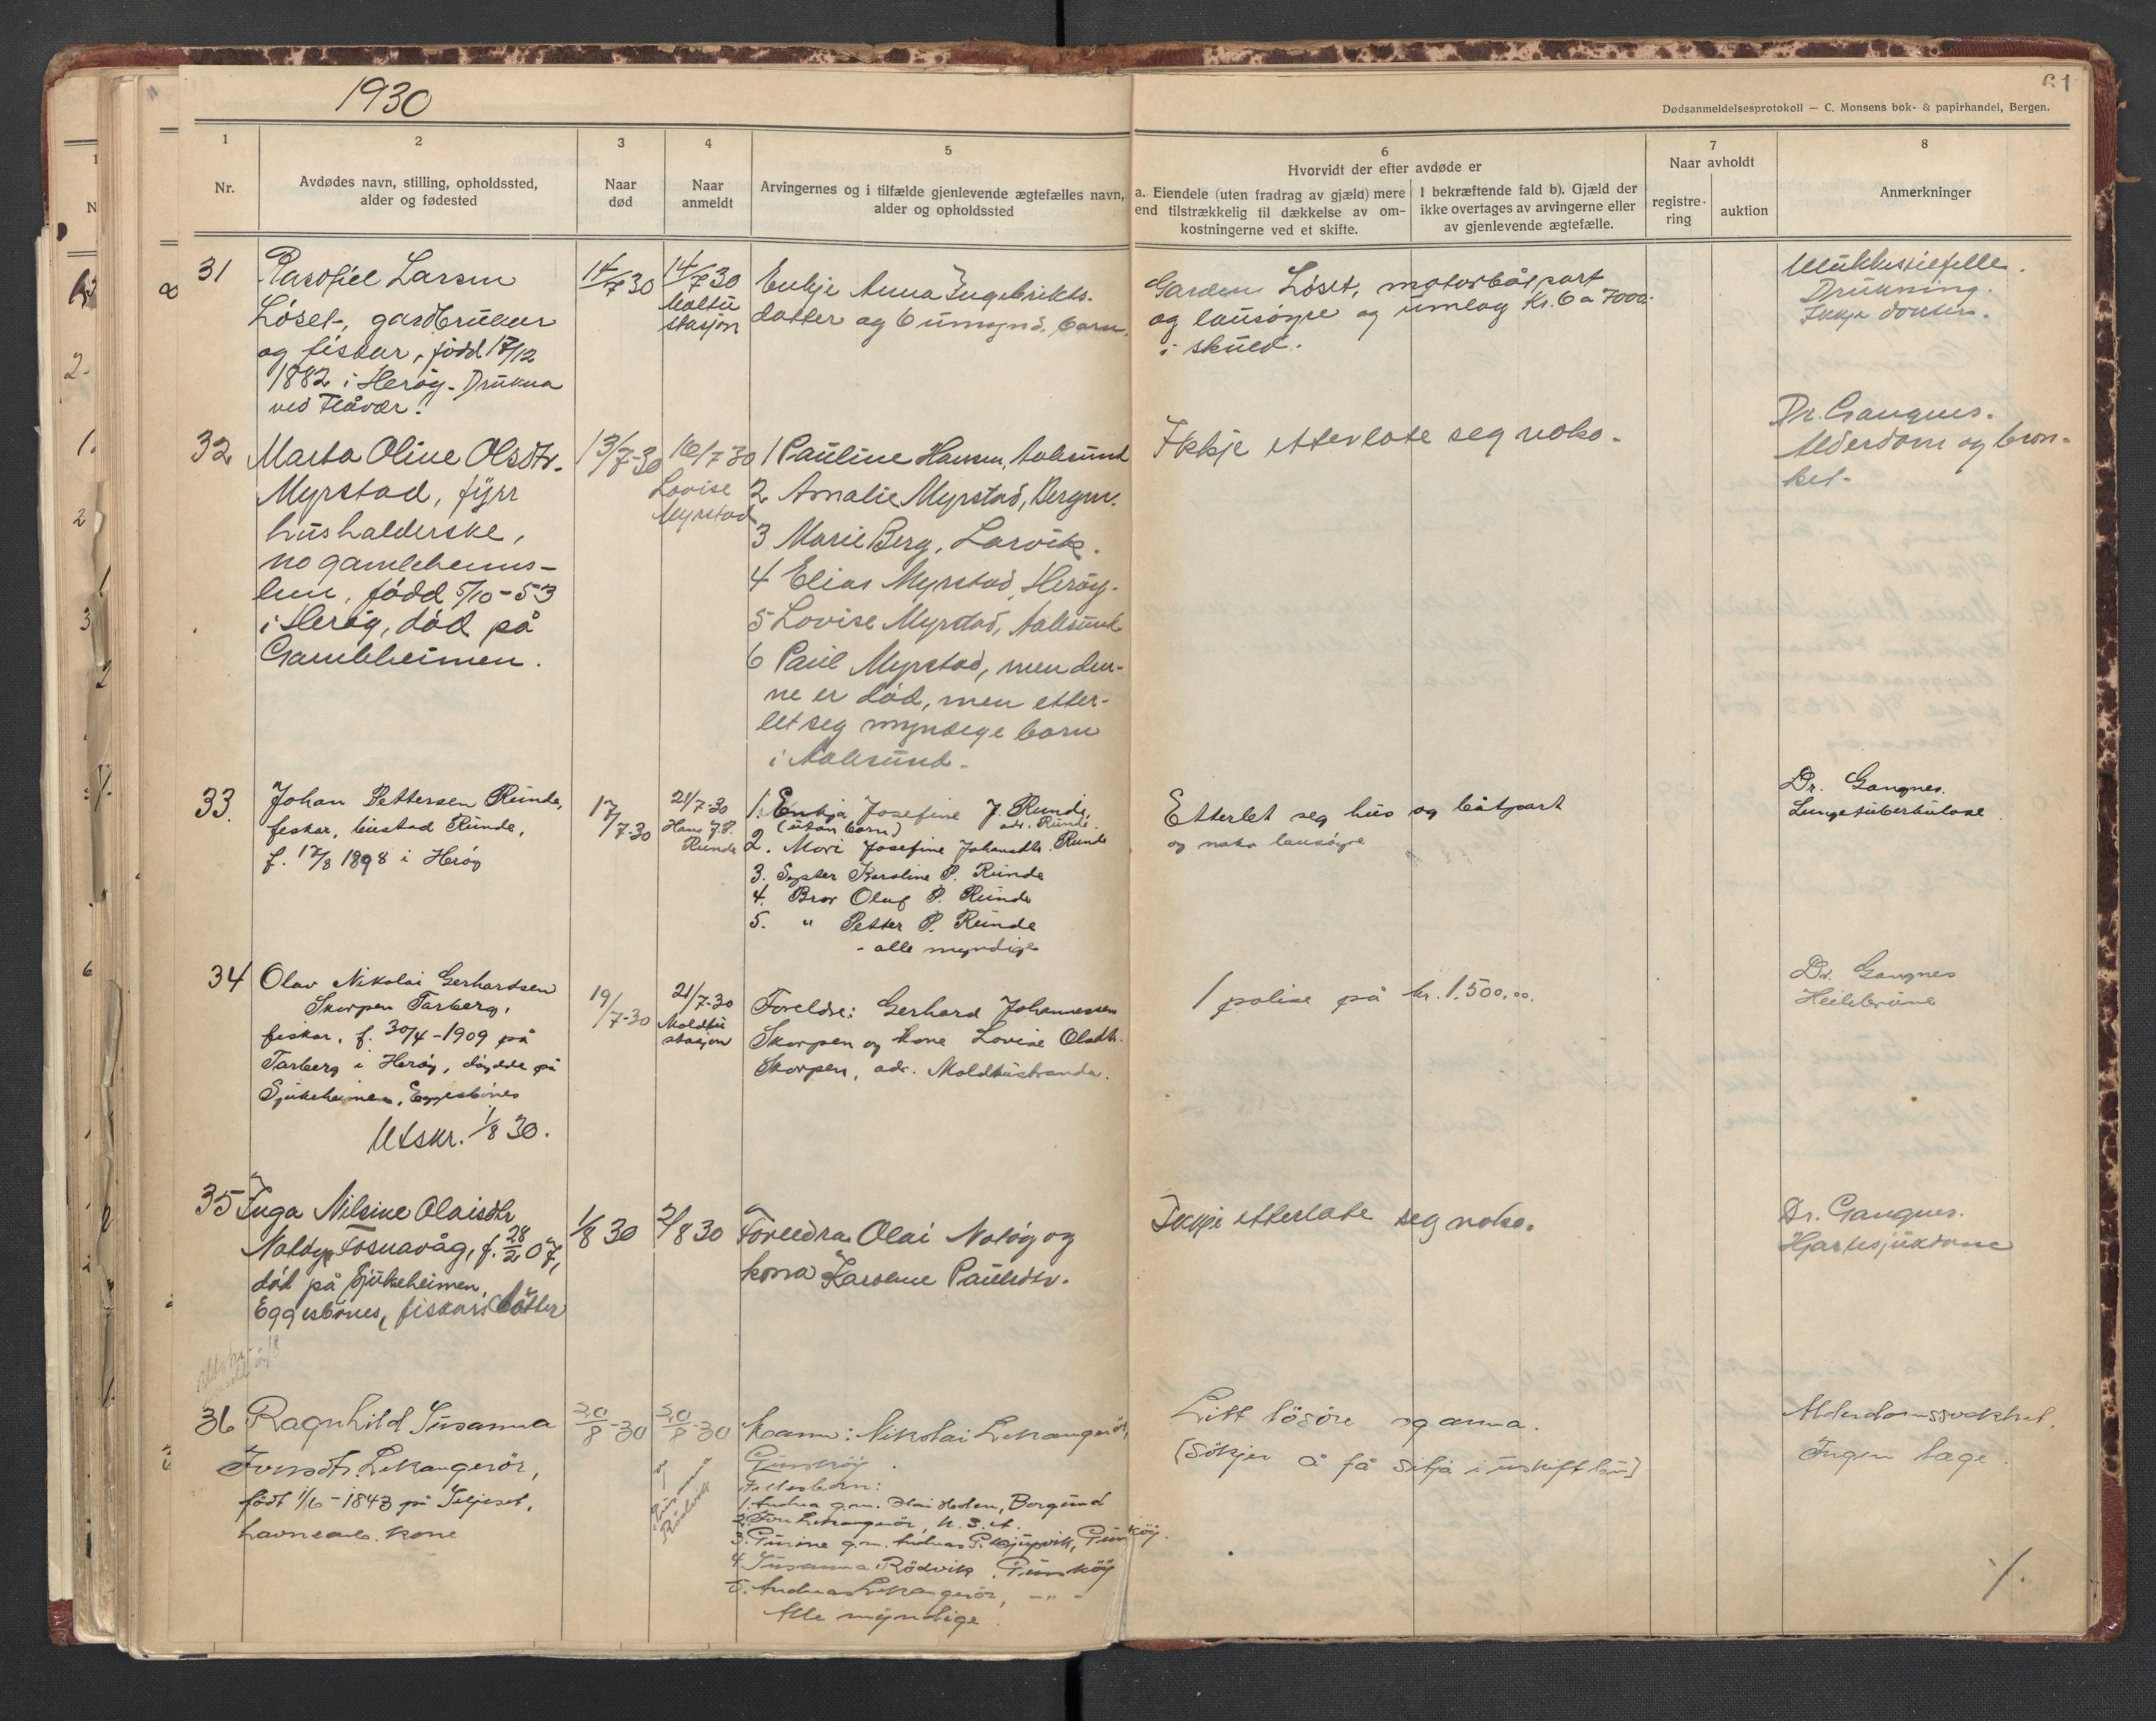 1930
61
Dødsanmeldelsesprotokoll — C. Monsens bok- & papirhandel, Bergen.
1
2
3
4
5
6
7
8
Nr.
Avdødes navn, stilling, opholdssted,
alder og fødested
Naar
død
Naar
anmeldt
Arvingernes og i tilfælde gjenlevende ægtefælles navn,
alder og opholdssted
Hvorvidt der efter avdøde er
a. Eiendele (uten fradrag av gjæld) mere
end tilstrækkelig til dækkelse av om-
kostningerne ved et skifte.
I bekræftende fald b). Gjæld der
ikke overtages av arvingerne eller
av gjenlevende ægtefælle.
Naar avholdt
registre-
ring
auktion
Anmerkninger
31
Larsen
Løset, gardbrukar
og fiskar, född 17/12
1882 i Heröy. Drukna
ved Flåvær.
14/7 30
14/7 30
Moltu
stasjon
Enkje Anna Ingebrikts-
datter og 6 umynd. barn.
Garden Löset, motorbåtpart
og lausöyre og umlag Kr. 6 a 7000.
i skuld.
Ulukkestilfelle.
Drukning.
Ikkje doktor.
32
Marta Oline Olsdtr.
Myrstad, fyrr
husholderske,
no gamleheims-
lem, född 5/10-53
i Heröy, död på
Gamleheimen.
13/7-30
16/7 30
Lovise
Myrstad
1 Pauline Hansen, Aalesund
2 Amalie Myrstad, Bergen.
3 Marie Berg, Larvik.
4 Elias Myrstad, Heröy.
5 Lovise Myrstad, Aalesund
6 Paul Myrstad, men den-
ne er död, men etter-
let seg myndige barn
i Aalesund.
Ikkje etterlate seg noko.
Dr. Gangnes.
Alderdom og bron-
kit.
33.
Johan Pettersen Runde,
fiskar, bustad Runde,
f. 17/8 1898 i Heröy
17/7-30
21/7-30
Hans J. P.
Runde
1. Enkja Josefine J. Runde,
(utan barn) adr. Runde.
2. Mori Josefine Johansdtr. Runde
3. Syster Karoline P. Runde
4. Bror Olaf P. Runde
5. " Petter P. Runde
- alle myndige
Etterlet seg hus og båtpart
og noko lausöyre
Dr. Gangnes.
Lungetuberkulose
34
Olav Nikolai Gerhardsen
Skorpen Tarberg,
fiskar, f. 30/4-1909 på
Tarberg i Heröy, döydde på
Sjukeheimen, Eggesbönes
Utskr. 1/8 30.
19/7-30
21/7-30
Moldtu
stasjon
Foreldre: Gerhard Johannessen
Skorpen og kone Lovise Olsdtr.
Skorpen, adr. Moldtustranda.
1 polise på kr. 1.500,00.
Dr. Gangnes
35
Inga Nilsine Olaisdtr
Notöy, Fosnavåg, f. 28/2 07,
död på Sjukeheimen,
Eggesbönes, fiskardotter
1/8 30
2/8 30
Foreldra Olai Notöy og
kona Karoline Paulsdtr.
Ikkje etterlate seg noko.
Dr. Gangnes.
Hjartesjukdom
36
Ragnhild Susanna
Iversdtr. Lekangerör,
födt 1/6-1843 på
havnearb. kone
20/8-30
20/8-30
Susanna
Rödvik
Mann: Nikolai Lekangerör,
Gurskøy.
Fellesborn:
1. Andrea g.m. Holen, Borgund
2. Iver Lekangerör, U.S.A.
3. Gurine g.m. Andreas P. Gjupvik, Gurskøy.
4. Susanna Rödvik, Gurskøy
5. Andreas Lekangerör, -"-
Alle myndige.
Litt lösöre og anna.
(Sökjer å få sitja i uskift bu)
Alderdomssvekket.
Ingen lage.